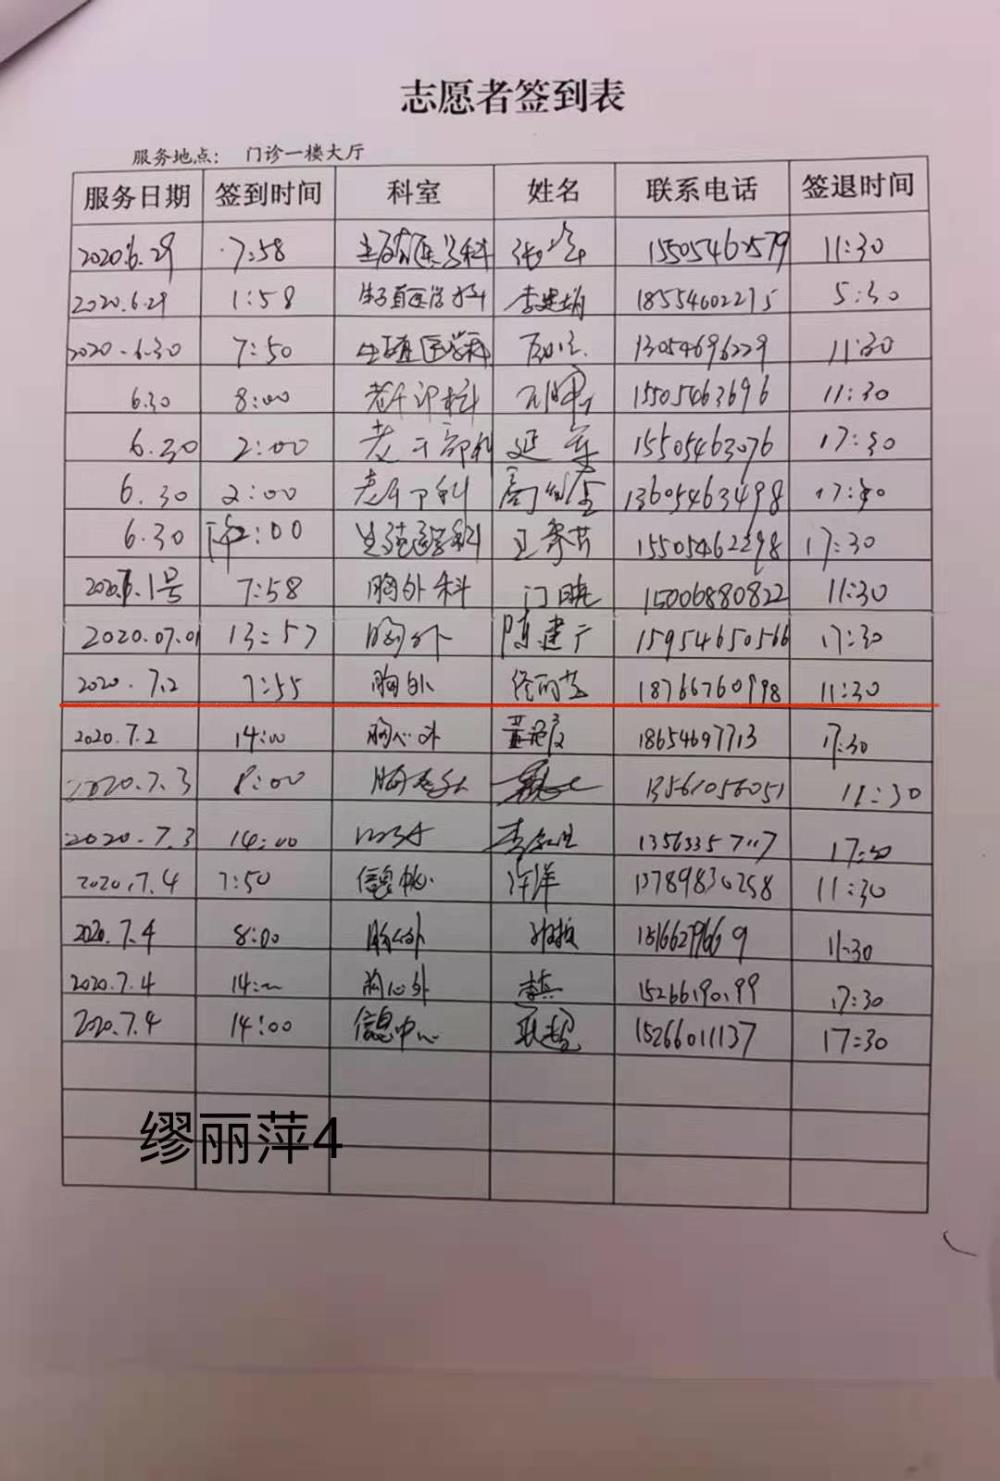 志愿者签到表
服务地点： 门诊一楼大厅
服务日期 签到时间 科室 姓名 联系电话 签退时间
2020.6.29 7:58 生殖医学科 15505462579 11:30
2020.6.29 1:58 生殖医学科 李建娟 18554602275 5:30
2020.6.30 7:50 生殖医学科 13054696229 11:30
6.30 8:00 老干部科 15505463696 11:30
6.30 2:00 老干部科 延军 15505463076 17:30
6.30 2:00 老干部科 13605463498 17:30
6.30 下午2:00 生殖医学科 王秀芳 15505462298 17:30
1号 7:58 胸外科 门晓 15006880822 11:30
2020.07.01 13:57 胸外 陈建广 15954650566 17:30
2020.7.2 7:55 胸外 18766760998 11:30
2020.7.2 14:00 胸心外 18654697713 17:30
2020.7.3 8:00 13561056051 11:30
2020.7.3 14:00 17:30
2020.7.4 7:50 信息中心 许洋 13789830258 11:30
2020.7.4 8:00 胸心外 11:30
2020.7.4 14:00 胸心外 李兵 15266190199 17:30
2020.7.4 14:00 信息中心 耿超 15266011137 17:30
缪丽萍4